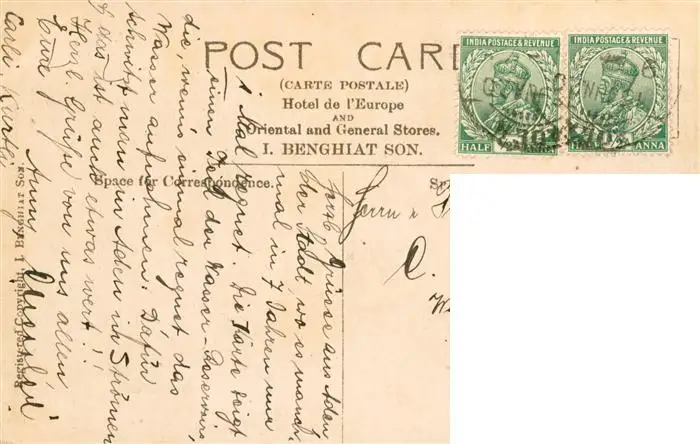 POST CARD
(CARTE POSTALE)
Hotel de l'Europe
AND
Oriental and General Stores.
I. BENGHIAT SON.
INDIA POSTAGE & REVENUE
HALF
INDIA POSTAGE & REVENUE
ANNA
Space for Correspondence.
Herrn
Grüsse aus Aden
der Stadt wo es manch-
mal in 7 Jahren nur
1 Mal regnet. Die Karte zeigt
einen Teil der Wasser-Reservoirs,
die, wenns einmal regnet das
Wasser aufnehmen. Dafür
schwitzt man in Aden in Strömen
das ist auch etwas wert!!
Herzl. Grüsse von uns allen
Eure
Anny
Carli, Kurtli
Registered Copyright. I. BENGHIAT SON.